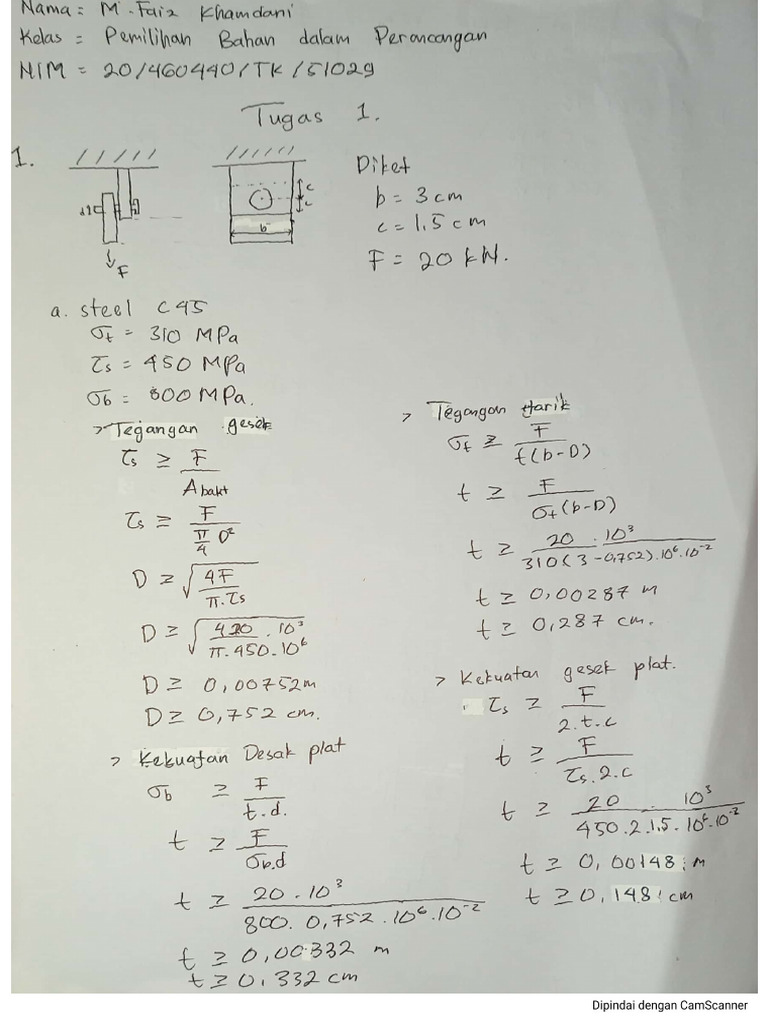 Nama = M. Faiz Khamdani
Kelas = Pemilihan Bahan dalam Perancangan
NIM = 20/460440/TK/51029
Tugas 1.
1.
d
F
c
c
b
Diket
b = 3 cm
c = 1,5 cm
F = 20 kN.
a. steel C45
σt = 310 MPa
τs = 450 MPa
σb = 800 MPa.
> Tegangan gesek
τs ≥ F / A bakt
τs ≥ F / (π/4 D²)
D ≥ √(4F / π.τs)
D ≥ √(4.20 . 10³ / π.450.10⁶)
D ≥ 0,00752 m
D ≥ 0,752 cm.
> Kekuatan Desak plat
σb ≥ F / t.d.
t ≥ F / σb.d
t ≥ 20.10³ / 800. 0,752 .10⁶.10⁻²
t ≥ 0,00332 m
t ≥ 0,332 cm
> Tegangan tarik
σt ≥ F / t(b-D)
t ≥ F / σt(b-D)
t ≥ 20 .10³ / 310(3-0,752).10⁶.10⁻²
t ≥ 0,00287 m
t ≥ 0,287 cm.
> Kekuatan gesek plat.
τs ≥ F / 2.t.c
t ≥ F / τs.2.c
t ≥ 20 . 10³ / 450.2.1,5.10⁶.10⁻²
t ≥ 0,00148 m
t ≥ 0,148 cm
Dipindai dengan CamScanner